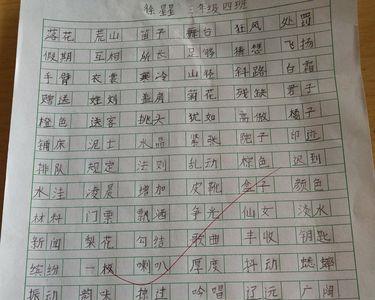 徐星星 三年级四班
落花 荒山 笛子 舞台 狂风 处罚
假期 互相 所长 足够 猜想 飞扬
手臂 衣裳 寒冷 山怪 斜路 白霜
赠送 姓刘 菊花 残缺 君子
橙色 送客 挑头 犹如 高傲 橘子
铺床 泥土 水晶 紧张 院子 印迹
排队 规定 法则 乱动 棕色 迟到
水洼 凌晨 增加 皮靴 盒子 颜色
材料 门票 飘洒 争光 仙女 淡水
新闻 梨花 勾结 歌曲 丰收 钥匙
缤纷 一枚 喇叭 厚度 抖动 蟋蟀
振动 韵味 掠过 吟唱 辽远 广阔